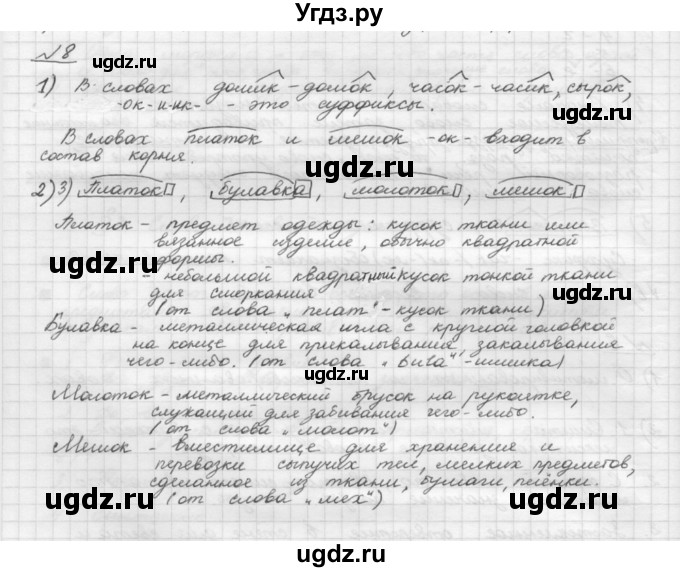 Угдз.ру
№8
1) В словах домик-домок, часок-часик, сырок,
-ок- и -ик- - это суффиксы.
В словах платок и мешок -ок- входит в
состав корня.
2)3) Платок, Булавка, молоток, мешок.
Платок - предмет одежды: кусок ткани или
вязанное изделие, обычно квадратной
формы.
- небольшой квадратный кусок тонкой ткани
для сморкания
(от слова "плат"-кусок ткани)
Булавка - металлическая игла с круглой головкой
на конце для прикалывания, закалывания
чего-либо. (от слова "bula"-шишка)
Молоток - металлический брусок на рукоятке,
служащий для забивания чего-либо.
(от слова "молот")
Мешок - вместилище для хранения и
перевозки сыпучих тел, мелких предметов,
сделанное из ткани, бумаги, плёнки.
(от слова "мех")
ugdz.ru
ugdz.ru
ugdz.ru
ugdz.ru
ugdz.ru
ugdz.ru
ugdz.ru
ugdz.ru
ugdz.ru
ugdz.ru
ugdz.ru
ugdz.ru
ugdz.ru
ugdz.ru